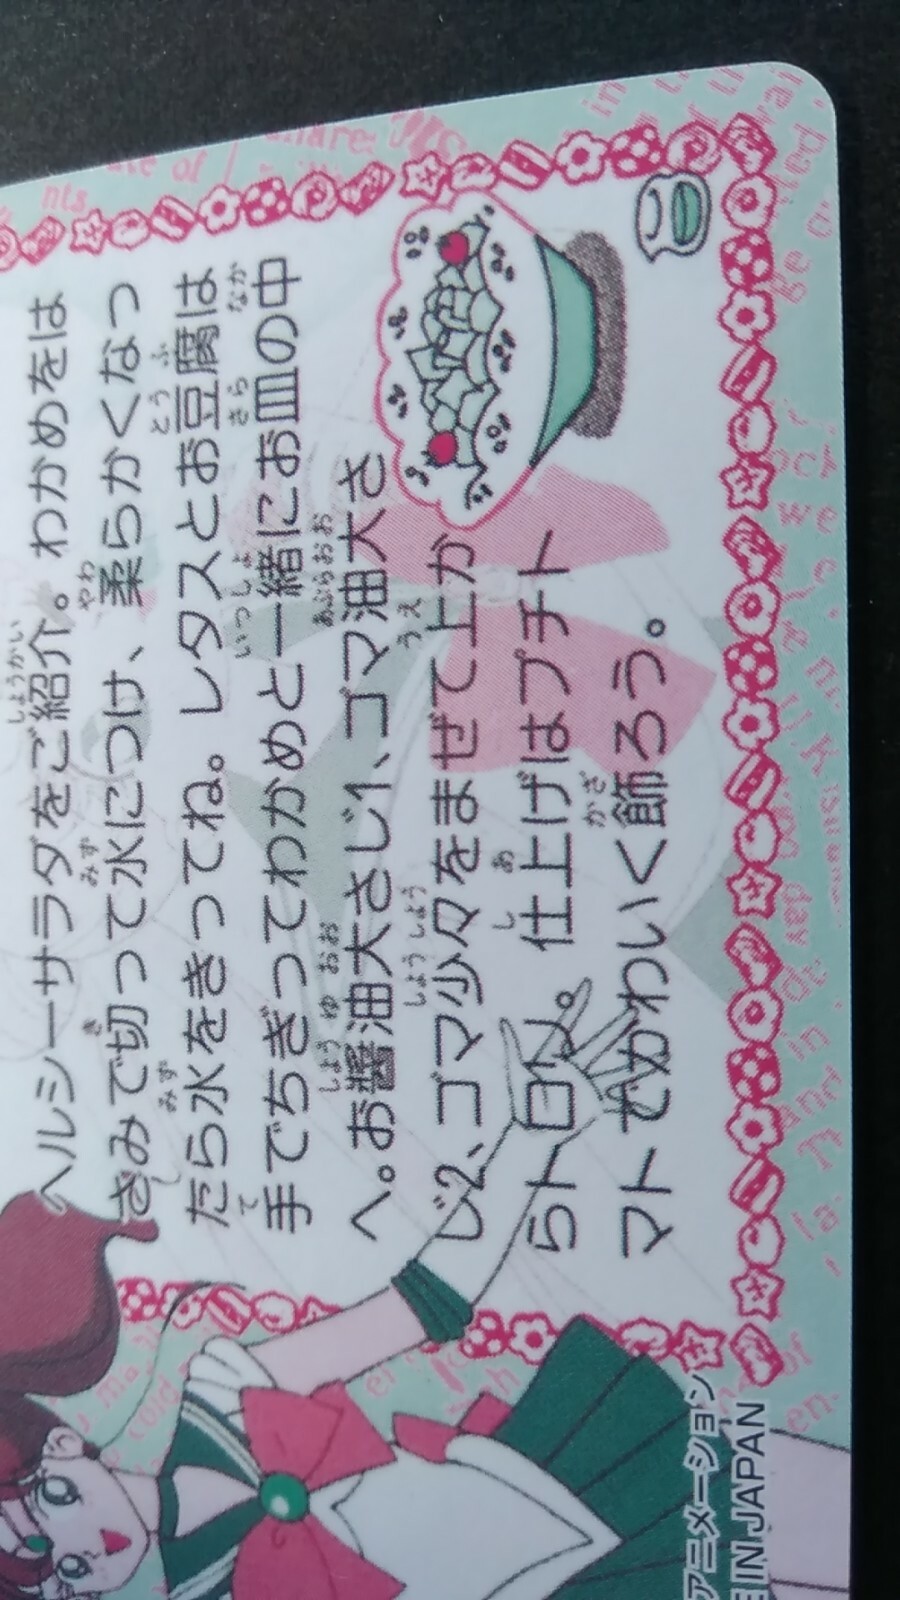 ヘルシーサラダをご紹介。わかめをは
さみで切って水につけ、柔らかくなっ
たら水をきってね。レタスとお豆腐は
手でちぎってわかめと一緒にお皿の中
へ。お醬油大さじ1、ゴマ油大さ
じ2、ゴマ少々をまぜて上か
らトロリ。仕上げはプチト
マトでかわいく飾ろう。
アニメーション
IN JAPAN